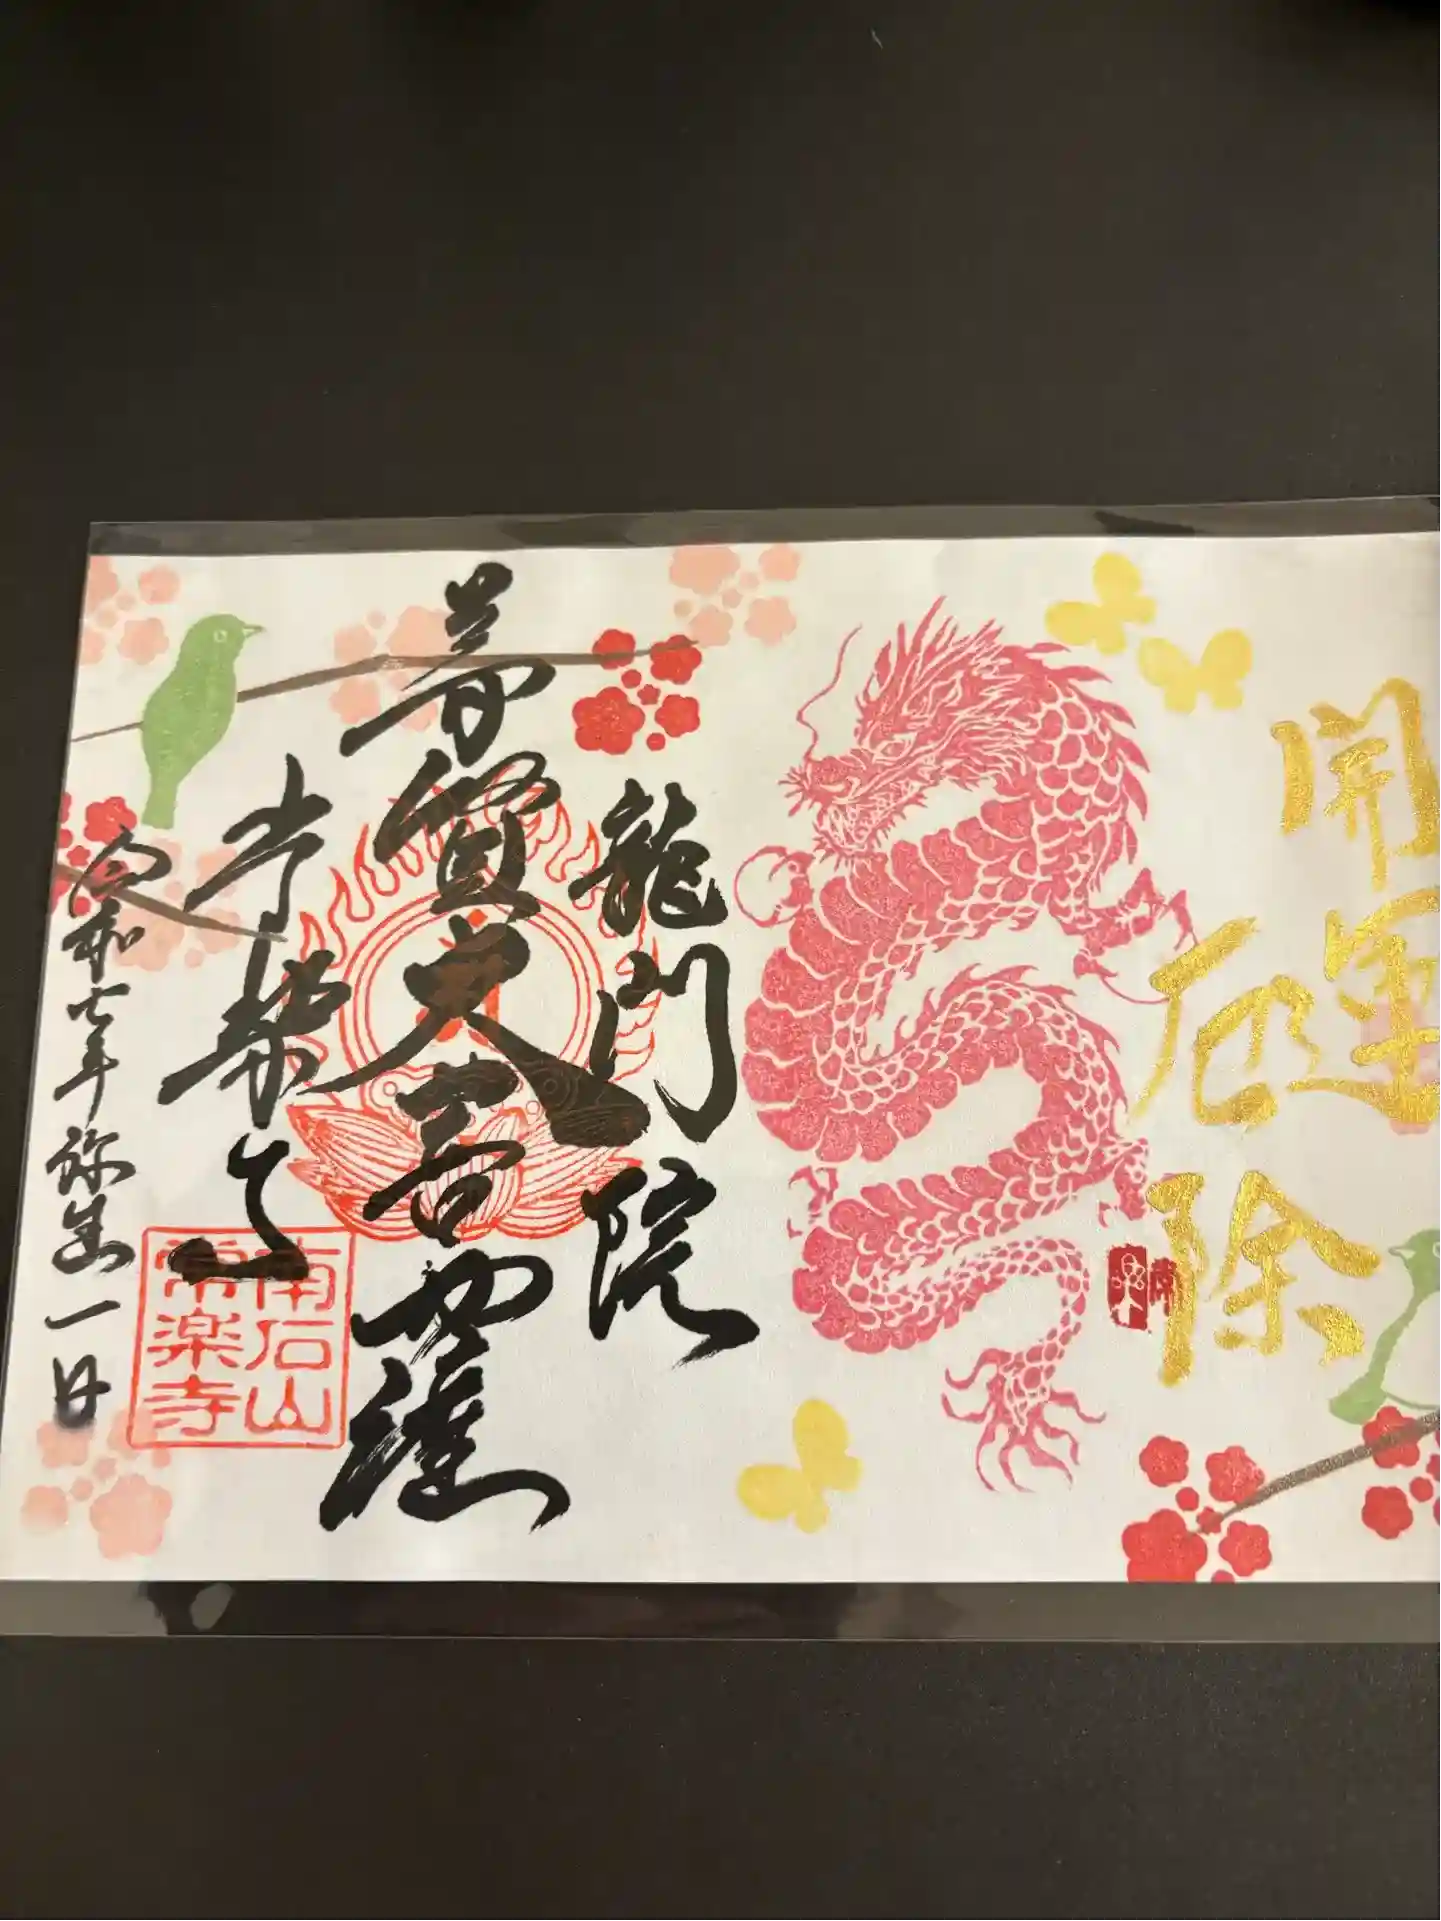 開運
厄除
龍門院
常楽寺
南石山
常楽寺
令和七年弥生一日